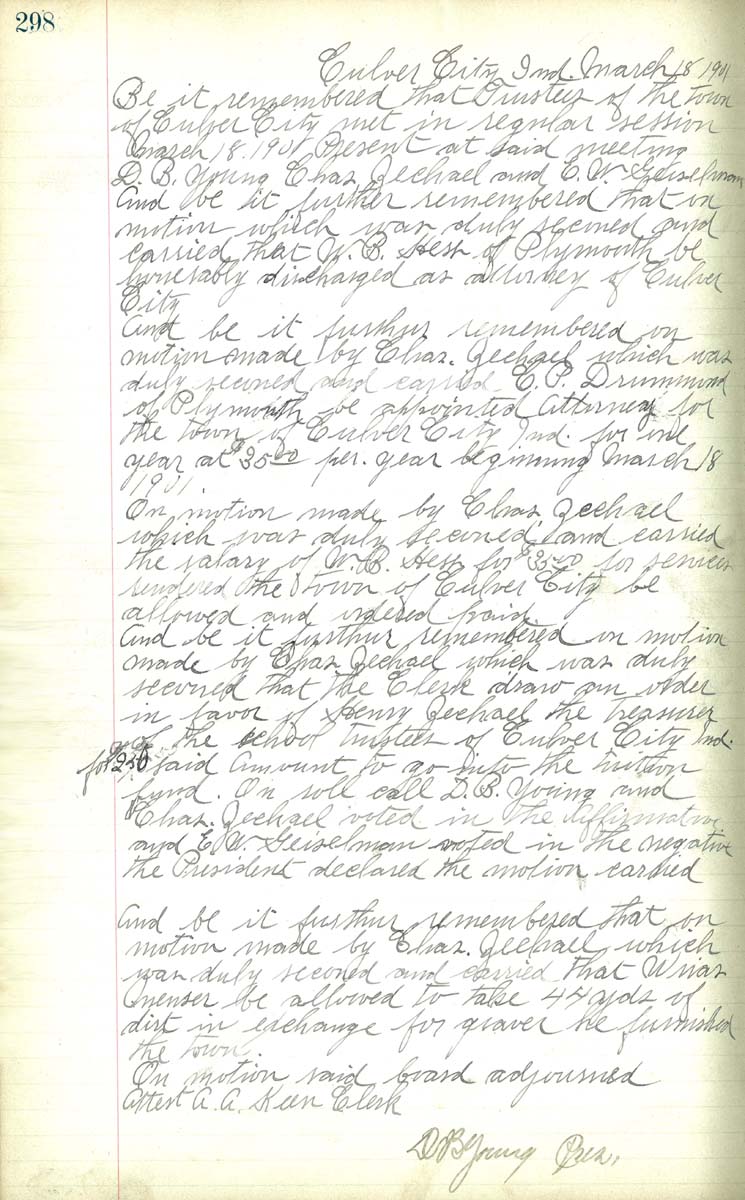 298
Culver City Ind. March 18 1901
Be it remembered that Trustees of the town
of Culver City met in regular session
March 18. 1901 Present at said meeting
D. B. Young Chas. Zechael and E. W. Geiselman
And be it further remembered that on
motion which was duly seconed and
carried that W. B. Hess of Plymouth be
honerably discharged as attorney of Culver
City
And be it furthur remembered on
motion made by Chas. Zechael which was
duly seconed and carried E. P. Drummond
of Plymouth be appointed Attorney for
the town of Culver City Ind. for one
year at $35 00 per. year beginning March 18
1901
On motion made by Chas Zechael
which was duly seconed and carried
the salary of W. B. Hess for $35 00 for services
rendered the town of Culver City be
allowed and ordered paid.
And be it furthur remembered on motion
made by Chas Zechael which was duly
seconed that the Clerk draw an order
in favor of Henry Zechael the treasurer
of the school trustees of Culver City Ind.
for $250 said amount to go into the tuition
fund. On roll call D. B. Young and
Chas. Zechael voted in the Affirmative
and E. W. Geiselman voted in the negative
the President declared the motion carried
And be it furthur remembered that on
motion made by Chas. Zechael which
was duly seconed and carried that Urias
Menser be allowed to take 44 yds of
dirt in exchange for graver he furnished
the town.
On motion said board adjourned
Attest A. A. Keen Clerk
D B Young Pres.